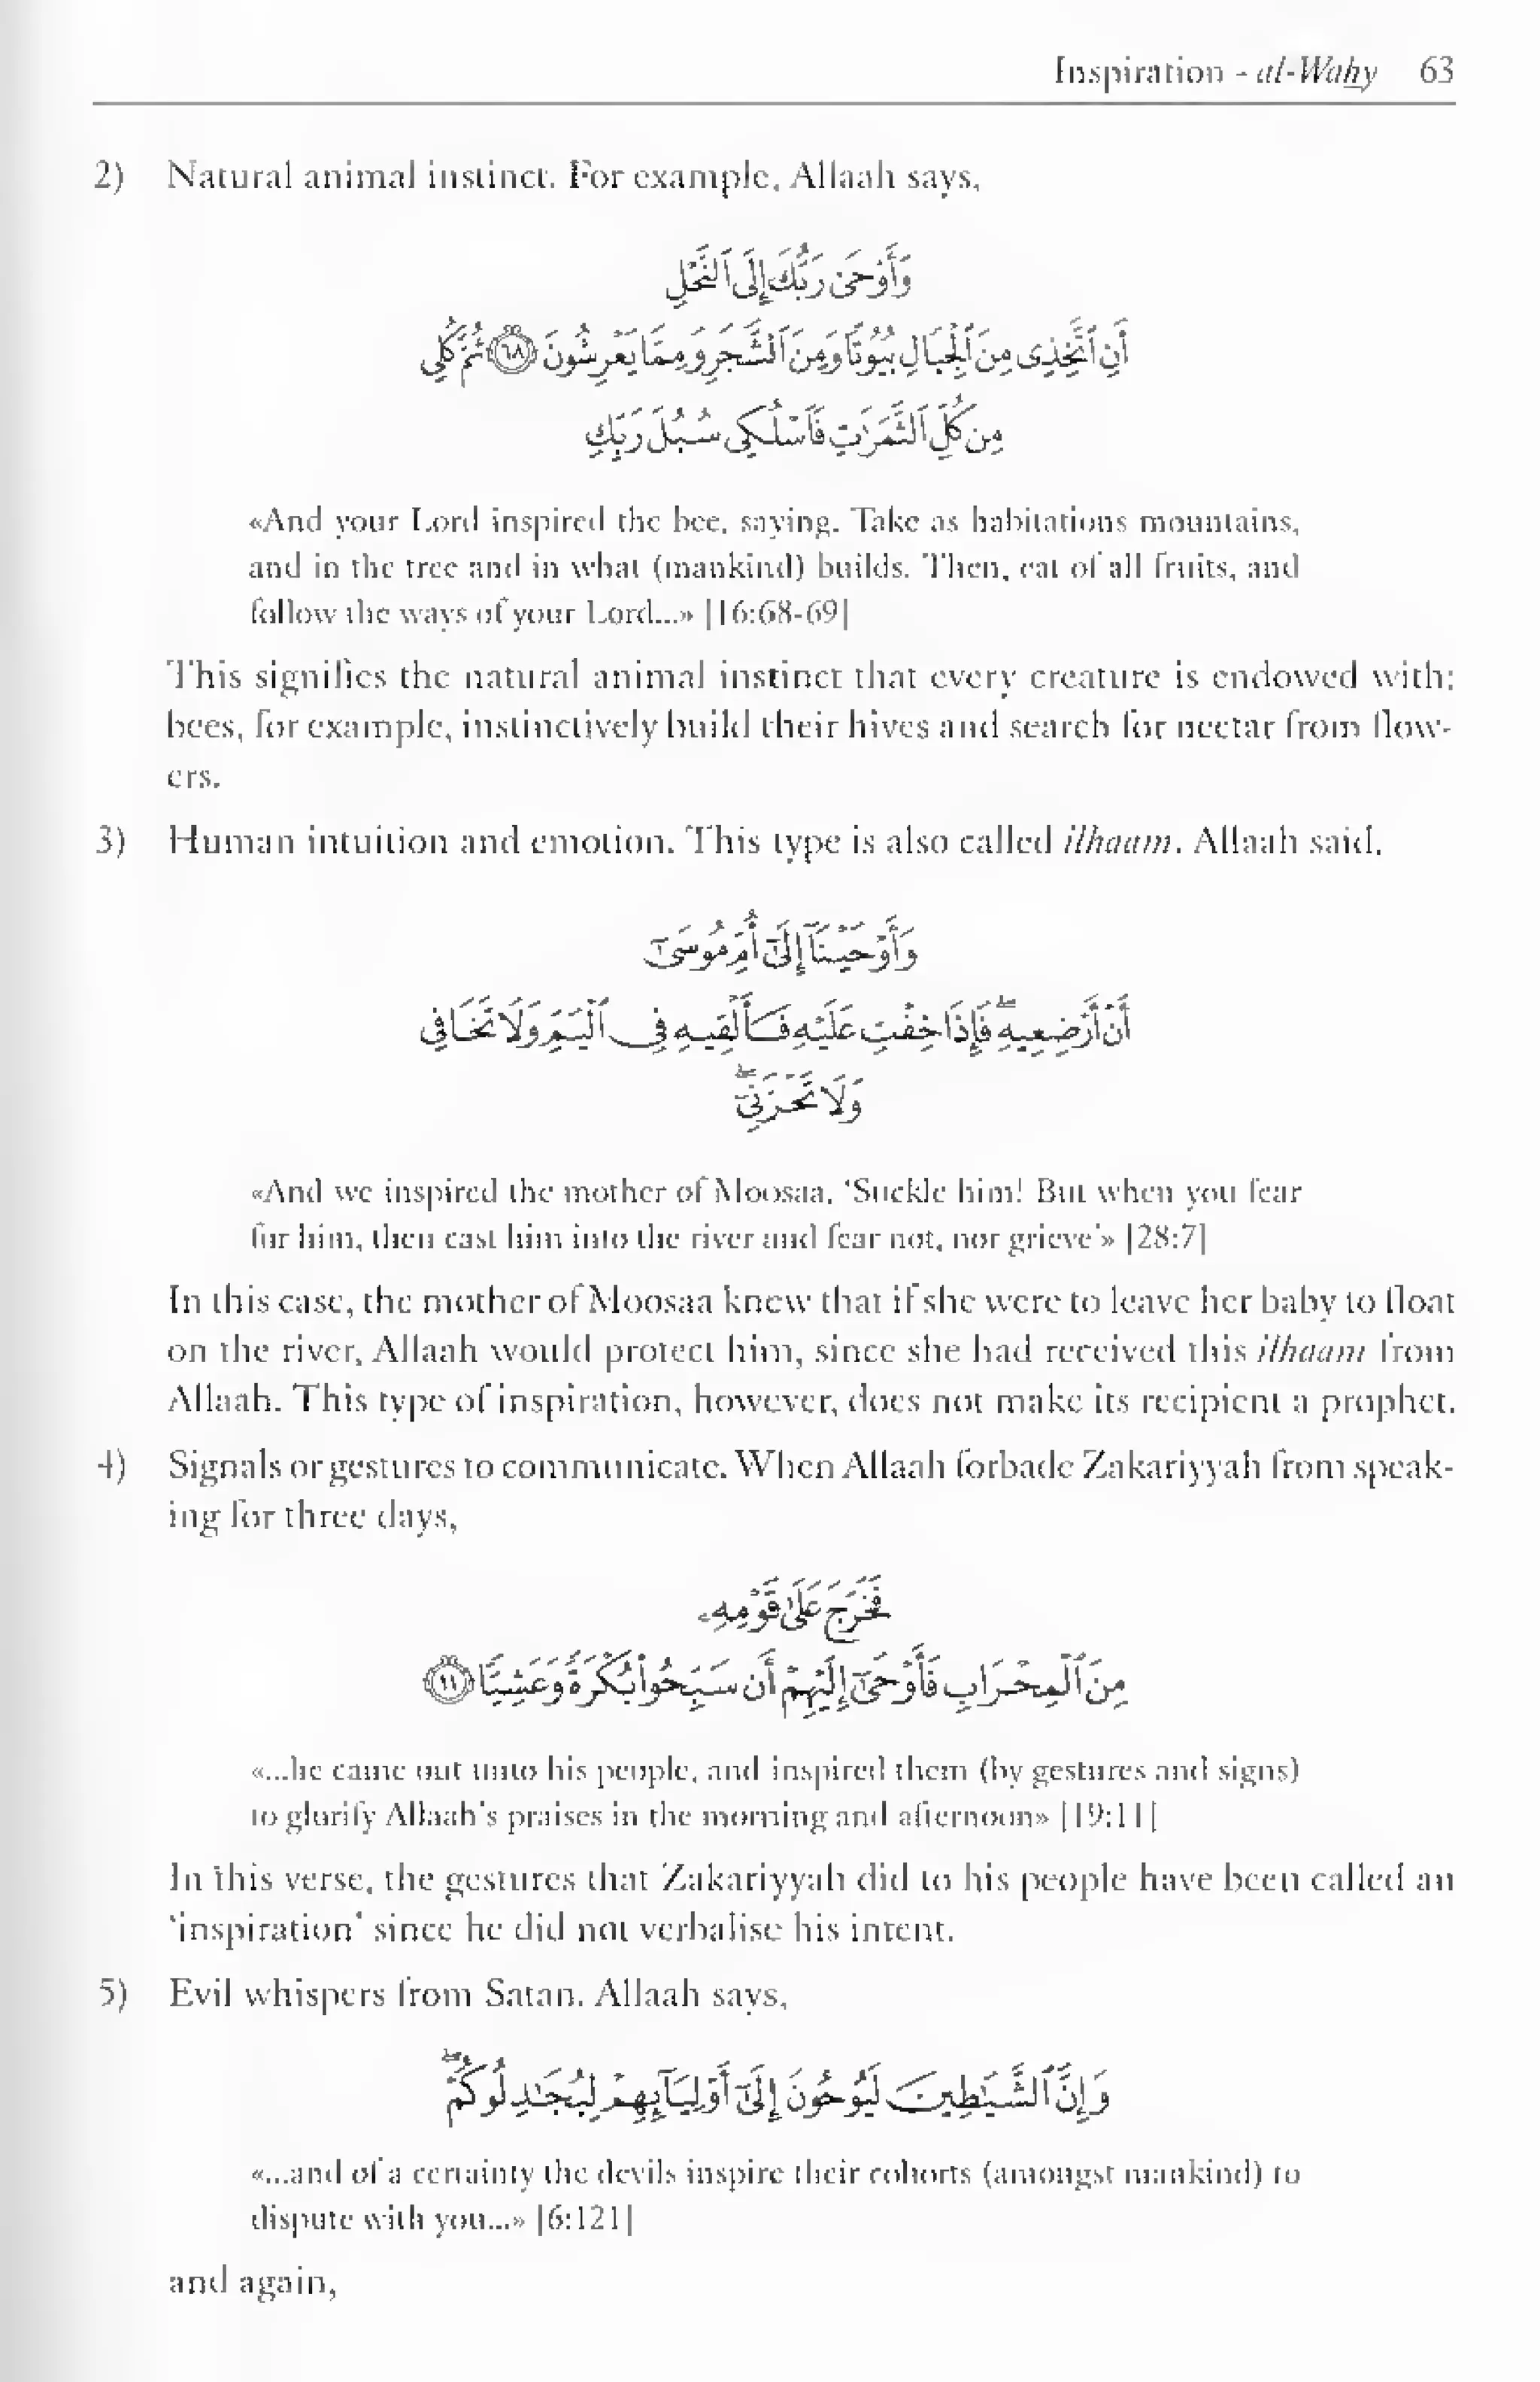 Inspiration - al-Wahy 63
2) Natural animal instinct. For example, Allaah says,
وَأَوْحَىٰ رَبُّكَ إِلَى ٱلنَّحْلِ
أَنِ ٱتَّخِذِى مِنَ ٱلْجِبَالِ بُيُوتًا وَمِنَ ٱلشَّجَرِ وَمِمَّا يَعْرِشُونَ ﴿٦٨﴾ ثُمَّ كُلِى
مِن كُلِّ ٱلثَّمَرَٰتِ فَٱسْلُكِى سُبُلَ رَبِّكِ
«And your Lord inspired the bee, saying, Take as habitations mountains,
and in the tree and in what (mankind) builds. Then, eat of all fruits, and
follow the ways of your Lord...» [16:68-69]
This signifies the natural animal instinct that every creature is endowed with;
bees, for example, instinctively build their hives and search for nectar from flow-
ers.
3) Human intuition and emotion. This type is also called ilhaam. Allaah said,
وَأَوْحَيْنَآ إِلَىٰٓ أُمِّ مُوسَىٰٓ
أَنْ أَرْضِعِيهِ ۖ فَإِذَا خِفْتِ عَلَيْهِ فَأَلْقِيهِ فِى ٱلْيَمِّ وَلَا تَخَافِى
وَلَا تَحْزَنِىٓ ۖ
«And we inspired the mother of Moosaa, 'Suckle him! But when you fear
for him, then cast him into the river and fear not, nor grieve'» [28:7]
In this case, the mother of Moosaa knew that if she were to leave her baby to float
on the river, Allaah would protect him, since she had received this ilhaam from
Allaah. This type of inspiration, however, does not make its recipient a prophet.
4) Signals or gestures to communicate. When Allaah forbade Zakariyyah from speak-
ing for three days,
فَخَرَجَ عَلَىٰ قَوْمِهِۦ
مِنَ ٱلْمِحْرَابِ فَأَوْحَىٰٓ إِلَيْهِمْ أَن سَبِّحُوا۟ بُكْرَةً وَعَشِيًّا ﴿١١﴾
«...he came out unto his people, and inspired them (by gestures and signs)
to glorify Allaah's praises in the morning and afternoon» [19:11]
In this verse, the gestures that Zakariyyah did to his people have been called an
'inspiration' since he did not verbalise his intent.
5) Evil whispers from Satan. Allaah says,
وَإِنَّ ٱلشَّيَٰطِينَ لَيُوحُونَ إِلَىٰٓ أَوْلِيَآئِهِمْ لِيُجَٰدِلُوكُمْ ۖ
«...and of a certainty the devils inspire their cohorts (amongst mankind) to
dispute with you...» [6:121]
and again,